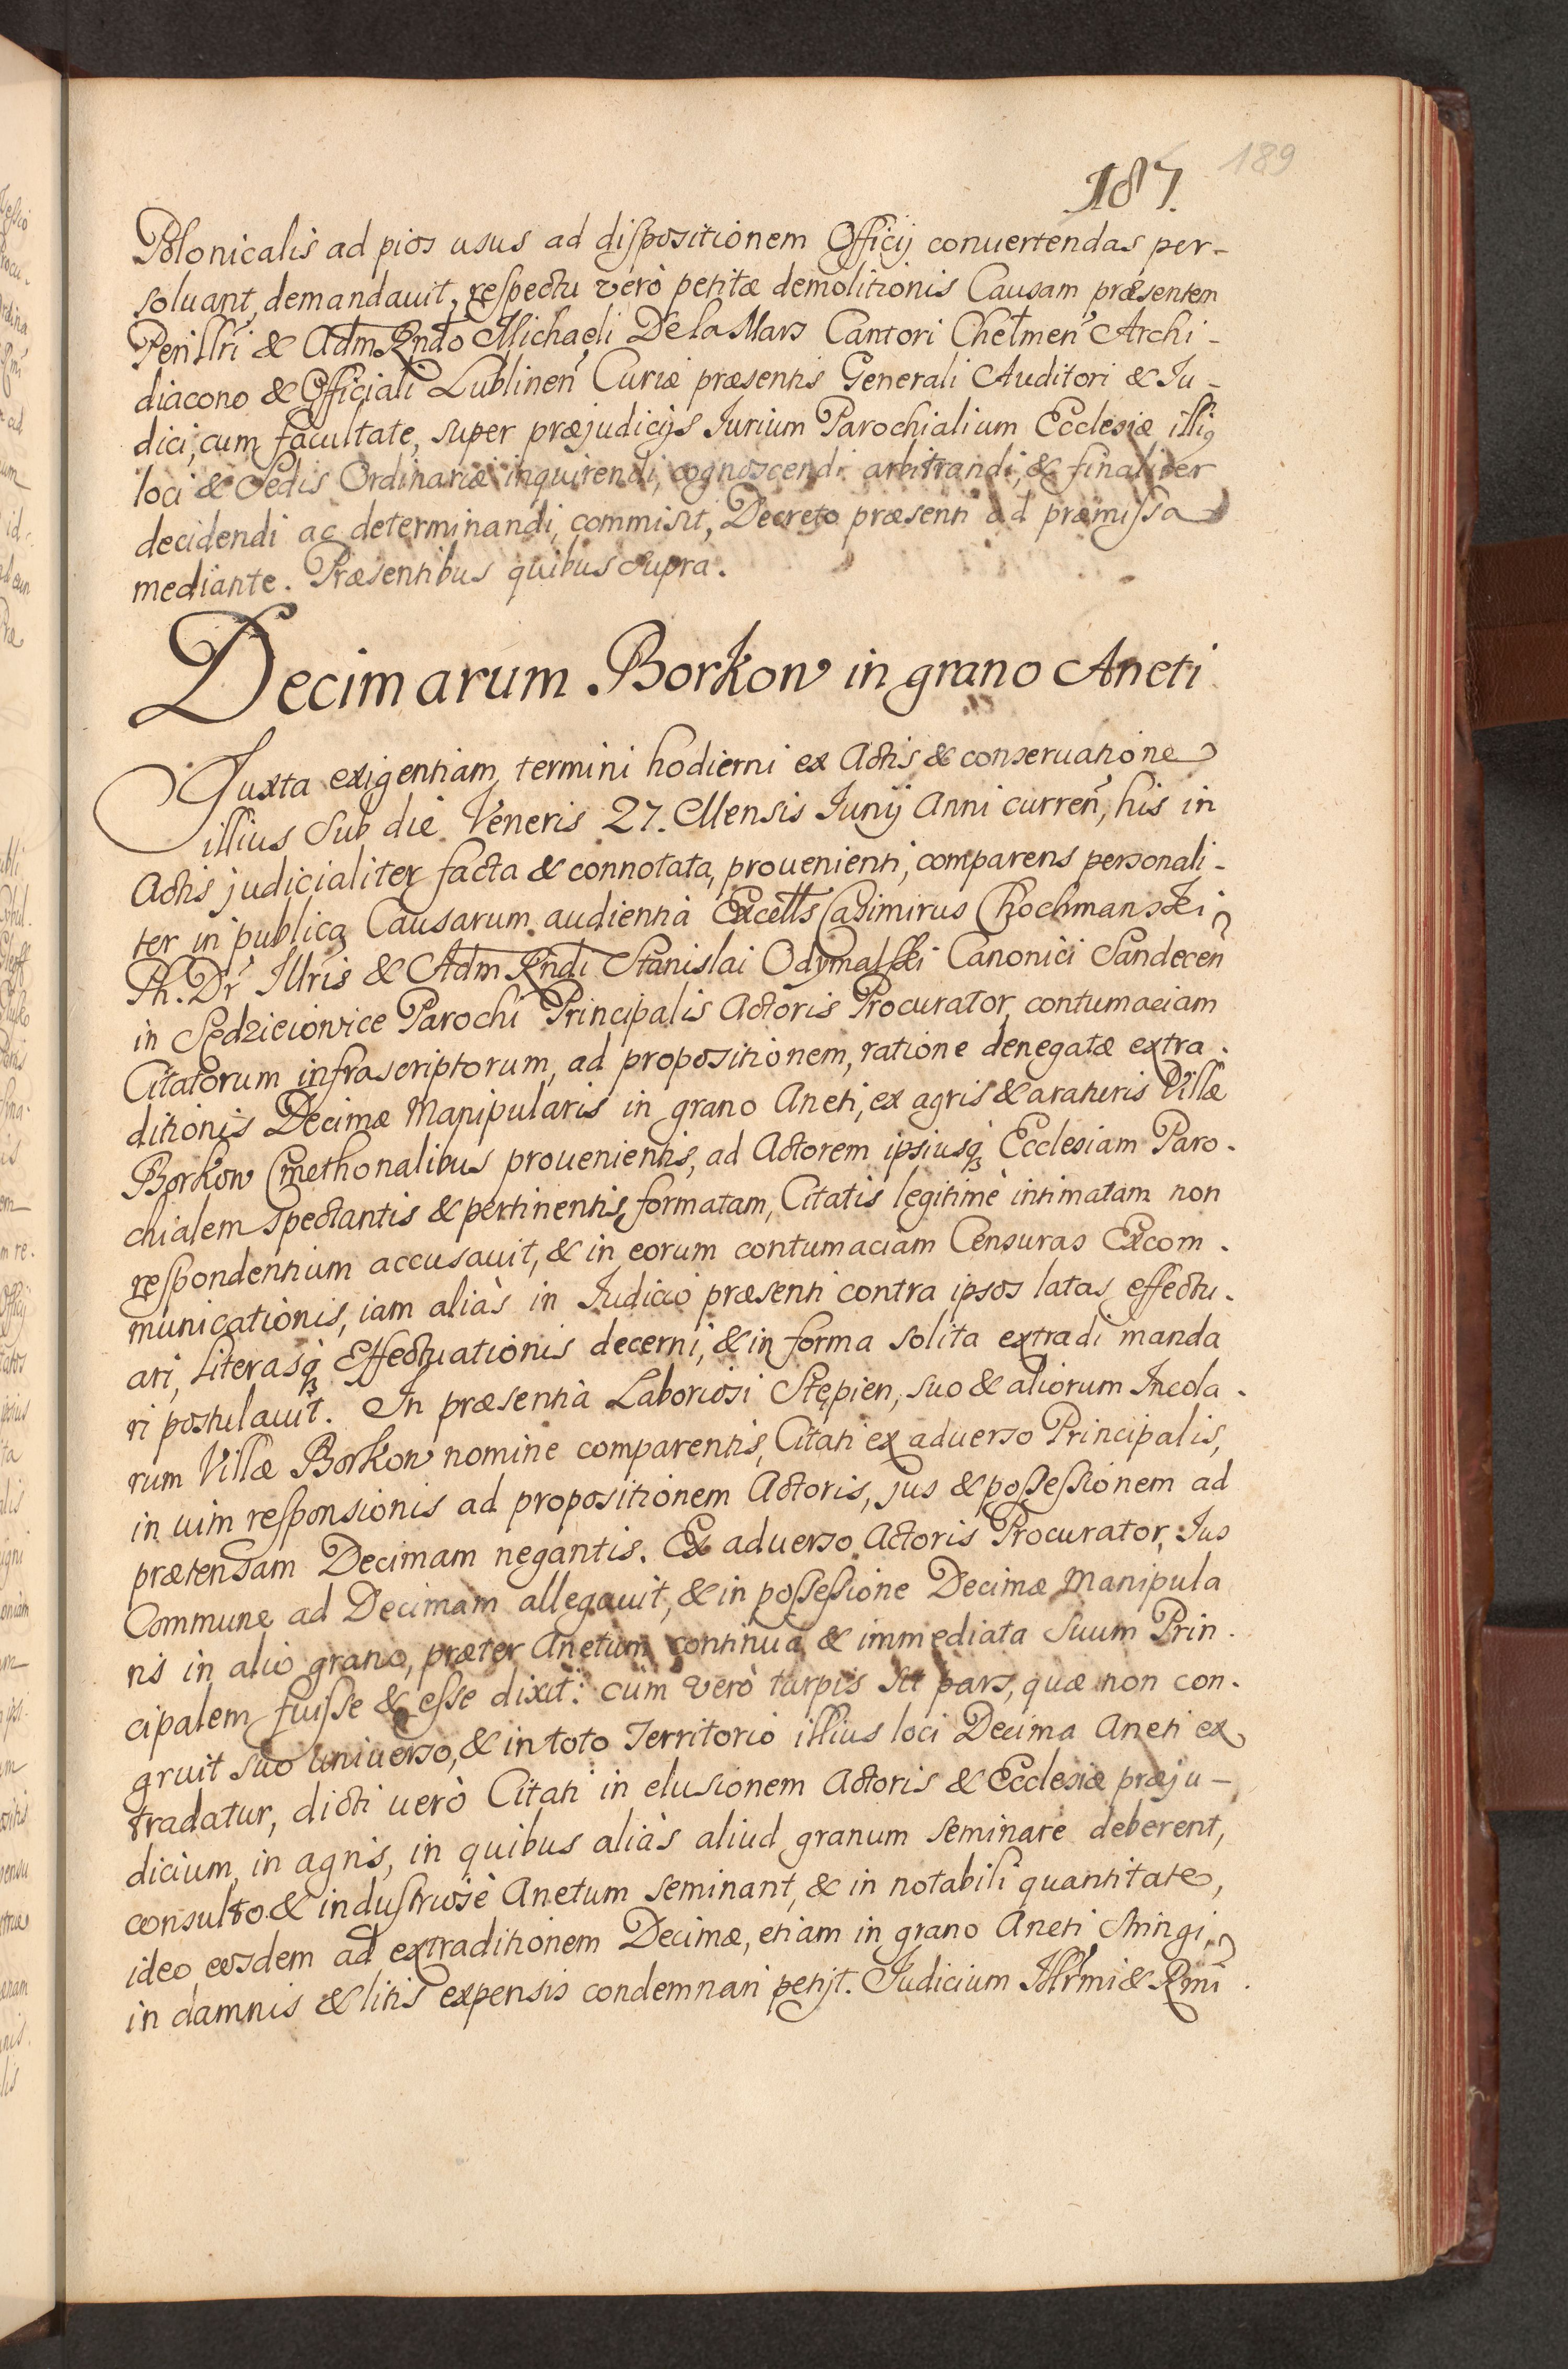 187. 189
Polonicalis ad pios usus ad dispositionem Officij conuertendas per-
soluant, demandauit, respectu verò petitæ demolitionis Causam præsentem
Perillri & Adm Rndo Michaeli De la Mars Cantori Chelmen Archi-
diacono & Officiali Lublinen Curiæ præsentis Generali Auditori & Iu-
dici, cum facultate, super præjudicijs Iurium Parochialium Ecclesiæ illius
loci & Sedis Ordinariæ inquirendi, cognoscendi arbitrandi, & finaliter
decidendi ac determinandi, commisit, Decreto præsenti ad præmissa
mediante. Præsentibus quibus supra.
Decimarum Borkow in grano Aneti
Juxta exigentiam termini hodierni ex Actis & conseruatione
illius Sub die Veneris 27. Mensis Iunij Anni curren, his in
Actis judicialiter facta & connotata, prouenienti, comparens personali-
ter in publica Causarum audientia Excells Casimirus Chochmanski
Ph. Dr Illris & Adm Rndi Stanislai Odymalski Canonici Sandecen
in Sędzieiowice Parochi Principalis Actoris Procurator, contumaciam
Citatorum infrascriptorum, ad propositionem, ratione denegatæ extra-
ditionis Decimæ Manipularis in grano Aneti, ex agris & araturis Villæ
Borkow Cmethonalibus prouenientis, ad Actorem ipsiusq Ecclesiam Paro-
chialem spectantis & pertinentis, formatam, Citatis legitimè intimatam non
respondentium accusauit, & in eorum contumaciam Censuras Excom-
municationis, iam aliàs in Iudicio præsenti contra ipsos latas, effectu-
ari, Literasq Effectuationis decerni, & in forma solita extradi manda
ri postulauit. In præsentià Laboriosi Stępien, suo & aliorum Incola-
rum Villæ Borkow nomine comparentis, Citati ex aduerso Principalis,
in uim responsionis ad propositionem Actoris, jus & possessionem ad
prætensam Decimam negantis. Ex aduerso Actoris Procurator, Ius
Commune ad Decimam allegauit, & in possessione Decimæ Manipula
ris in alio grano, præter Anetum continua & immediata Suum Prin-
cipalem fuisse & esse dixit: cum verò turpis sit pars, quæ non con-
gruit suo uniuerso, & in toto Territorio illius loci Decima Aneti ex
tradatur, dicti uerò Citati in elusionem Actoris & Ecclesiæ præju-
dicium, in agris, in quibus aliàs aliud granum seminare deberent,
consulto & industriosè Anetum seminant, & in notabili quantitate,
ideo eosdem ad extraditionem Decimæ, etiam in grano Aneti stringi,
in damnis & litis expensis condemnari petijt. Iudicium Illrmi & Rmi